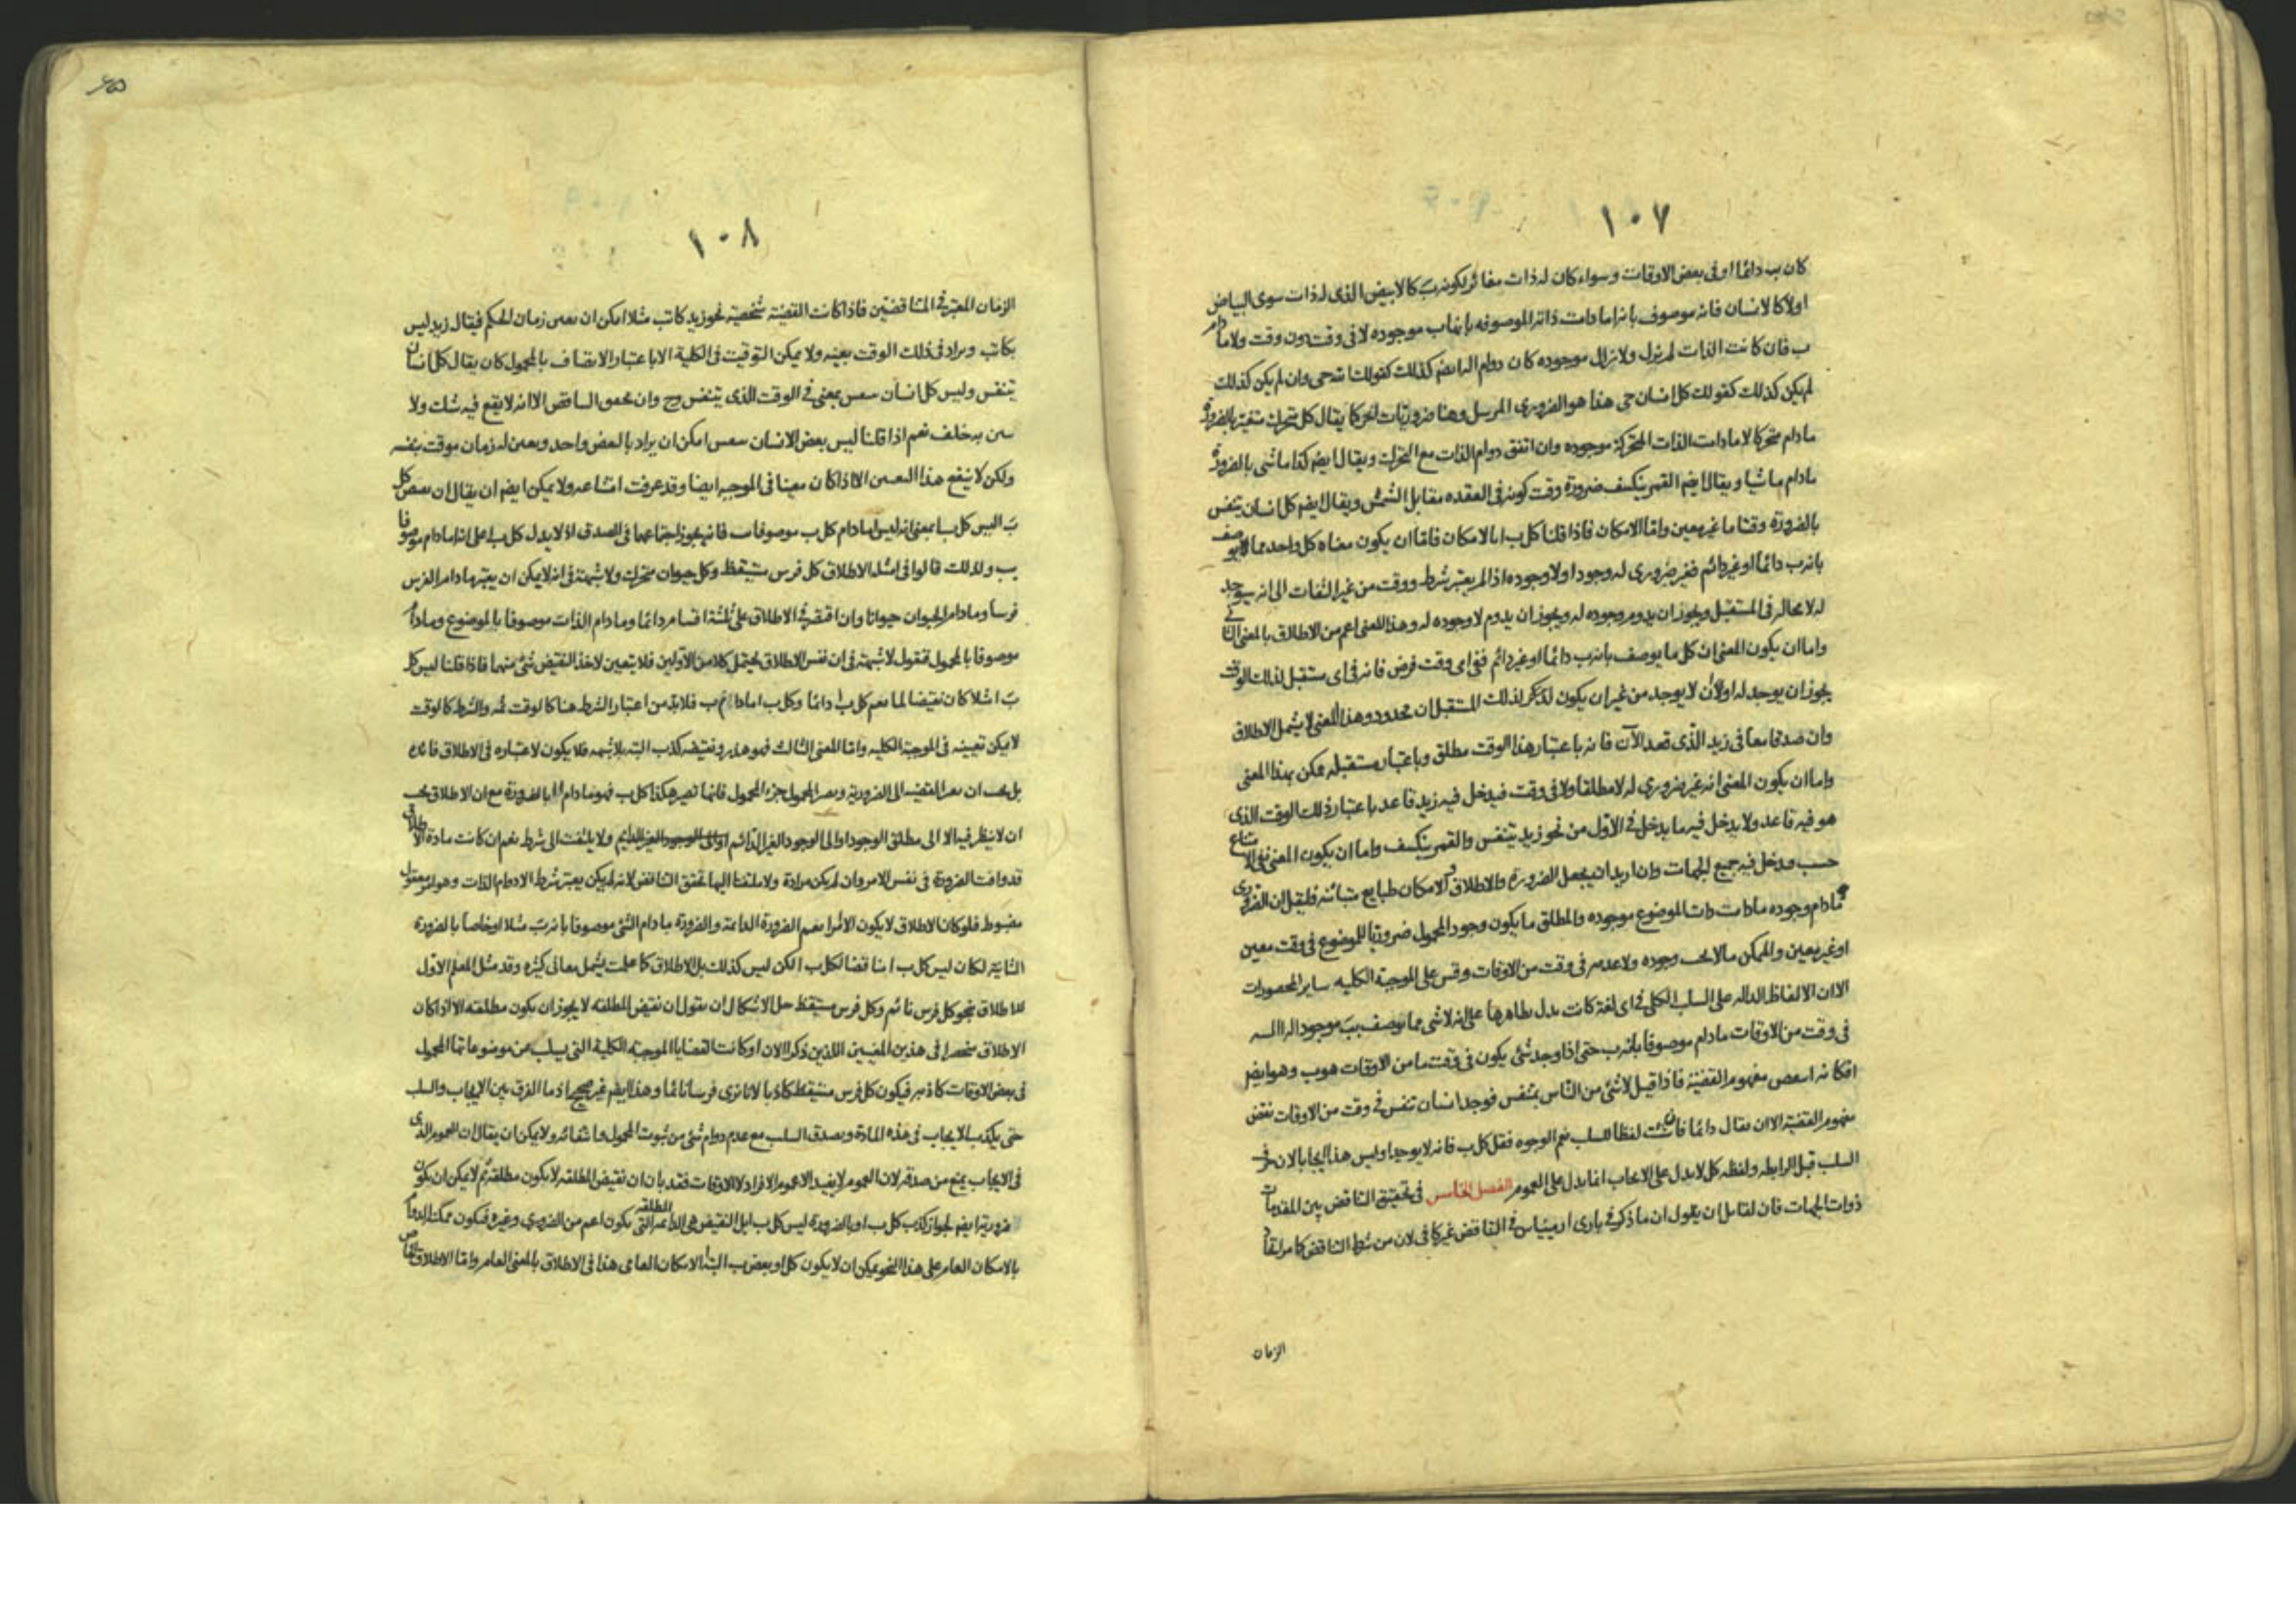 ١٠٧
كان ب دائما او فى بعض الاوقات وسواء كان له ذات مغائر لكونه ب كالابيض الذى له ذات سوى البياض
اولا كالانسان فانه موصوف بانه ا مادامت ذاته الموصوفه بانها ب موجوده لا فى وقت دون وقت ولا مادام
ب فان كانت الذات لم يزل ولا يزال موجوده كان دوام الـ ايضا كذلك كقولك الله حى وان لم يكن كذلك
لم يكن كذلك كقولك كل انسان حى هذا هو الضرورى المرسل وهنا ضروريات اخر كما يقال كل متحرك متغير بالضرورة
مادام متحركا لا مادامت الذات المتحركة موجوده وان اتفق دوام الذات مع التحرك ويقال ايضا كذا ماشى بالضرورة
مادام ماشيا ويقال ايضا القمر ينكسف ضرورة وقت كونه فى العقده مقابل الشمس ويقال ايضا كل انسان يتنفس
بالضرورة وقتا ما غير معين واما الامكان فاذا قلنا كل ب ا بالامكان فاما ان يكون معناه كل واحد مما يوصف
بانه ب دائما او غير دائم فغير ضرورى له وجود ا ولا وجوده اذا لم يعتبر شرط ووقت من غير التفات الى انه يوجد
له لا محاله فى المستقبل ويجوز ان يدوم وجوده له ويجوز ان يدوم لا وجوده له وهذا المعنى اعم من الاطلاق بالمعنى
واما ان يكون المعنى ان كل ما يوصف بانه ب دائما او غير دائم ففى اى وقت فرض فانه فى اى مستقبل لذلك الوقت
يجوز ان يوجد له ا ولان لا يوجد من غير ان يكون لذلك المستقبل ان محدود وهذا المعنى لا يشمل الاطلاق
وان صدقا معا فى زيد الذى قعد الآن فانه باعتبار هذا الوقت مطلق وباعتبار مستقبله ممكن بهذا المعنى
واما ان يكون المعنى انه غير ضرورى له لا مطلقا ولا فى وقت فيدخل فيه زيد قاعد باعتبار ذلك الوقت الذى
هو فيه قاعد ولا يدخل فيه ما يدخل فى الاول من نحو زيد يتنفس والقمر ينكسف واما ان يكون المعنى نفى الامتناع
حسب ويدخل فيه جميع الجهات وان اريد ان يجعل الضرورة والاطلاق والامكان طبايع متباينه فليقل ان الضرورى
مادام وجوده مادامت ذات الموضوع موجوده والمطلق ما يكون وجود المحمول ضروريا للموضوع فى وقت معين
او غير معين والممكن ما لا يجب وجوده ولا عدمه فى وقت من الاوقات وقس على الموجبة الكليه ساير المحصورات
الا ان الالفاظ الداله على السلب الكلى فى اى لغة كانت يدل بظاهرها على انه لا شى مما يوصف بب موجود له ا
فى وقت من الاوقات مادام موصوفا بانه ب حتى اذا وجد شئ يكون فى وقت ما من الاوقات هو ب وهو ايضا
ا فكانه انتقض مفهوم القضية فاذا قيل لا شئ من الناس بمتنفس فوجد انسان تنفس فى وقت من الاوقات نقض
مفهوم القضية الا ان يقال دائما فان لفظا للسلب يعم الوجوه فقل كل ب فانه لا يوجد ا وليس هذا ايجابا لان حرف
السلب قبل الرابطه ولفظه كل لا يدل على الايجاب انما يدل على العموم الفصل الخامس فى تحقيق التناقض بين المقدمات
ذوات الجهات فان لقائل ان يقول ان ما ذكر فى بارى ارمينياس فى التناقض غير كاف لان من شرط التناقض كما مر اتفاق
الزمان
١٠٨
الزمان المعتبر فى المتناقضتين فاذا كانت القضية شخصية نحو زيد كاتب مثلا امكن ان يعين زمان الحكم فيقال زيد ليس
بكاتب ويراد فى ذلك الوقت بعينه ولا يمكن التوقيت فى الكلية الا باعتبار الاتصاف بالمحمول كان يقال كل انسان
يتنفس وليس كل انسان يتنفس بمعنى فى الوقت الذى يتنفس وح وان تحقق التناقض الا انه لا يقع فيه شك ولا
به خلف نعم اذا قلنا ليس بعض الانسان يتنفس امكن ان يراد بالبعض واحد ويعين له زمان موقت بنفسه
ولكن لا ينفع هذا التعيين الا اذا كان معينا فى الموجبه ايضا وقد عرفت امتناعه ولا يمكن ايضا ان يقال ان نقيض كل
ب ا ليس كل ب ا بمعنى انه ليس ا مادام كل ب موصوفا ب فانه يجوز اجتماعهما فى الصدق اذ لا يدل كل ب ا على انه ا مادام موصوفا
بب ولذلك قالوا فى امثله الاطلاق كل فرس مستيقظ وكل حيوان متحرك ولا شبهة فى انه لا يمكن ان يعتبر مادام الفرس
فرسا ومادام الحيوان حيوانا وان اقتصر فى الاطلاق على ثلثة اقسام دائما ومادام الذات موصوفا بالموضوع ومادام
موصوفا بالمحمول فنقول لا شبهة فى ان نفس الاطلاق يحتمل كلا من الاولين فلا يتعين لاخذ النقيض شئ منهما فاذا قلنا ليس كل
ب ا مثلا كان نقيضا لما يعم كل ب ا دائما وكل ب ا مادام ب فلا بد من اعتبار الشرط هنا كالوقت ثمه والشرط كالوقت
لا يمكن تعيينه فى الموجبة الكليه واما المعنى الثالث فهو هدر ونقيضه كذب البته بلا شبهه فلا يكون لاعتباره فى الاطلاق فائدة
بل يجب ان القضيه الى الضرورية ويصير المحمول جزء المحمول فانها تصير هكذا كل ب فهو مادام ا ا بالضرورة مع ان الاطلاق يجب
ان لا ينظر فيه الا الى مطلق الوجود او الى الوجود الغير الدائم ولا يلتفت الى شرط نعم ان كانت مادة الاطلاق
قد وافت الضرورة فى نفس الامر وان لم يكن مرادة ولا ملتفتا اليها تحقق التناقض لانه لم يكن يعتبر شرط الا دوام الذات وهو امر معقول
مضبوط فلو كان الاطلاق لا يكون الا امرا يعم الضرورة الدائمة والضرورة مادام الشئ موصوفا بانه ب مثلا او خاصا بالضرورة
الثانية لكان ليس كل ب ا مناقضا لكل ب ا لكن ليس كذلك بل الاطلاق كما علمت يشمل معانى كثيرة وقد مثل المعلم الاول
للاطلاق بنحو كل فرس نائم وكل فرس مستيقظ حل الاشكال ان نقول ان نقيض المطلقه لا يجوز ان يكون مطلقه الا اذا كان
الاطلاق منحصرا فى هذين المعنيين اللذين ذكرا الان او كانت القضايا الموجبة الكلية التى يسلب عن موضوعاتها المحمول
فى بعض الاوقات كاذبه فيكون كل فرس مستيقظ كاذبا لانا نرى فرسا نائما وهذا ايضا غير صحيح اذ ما الفرق بين الايجاب والسلب
حتى يكذب الايجاب فى هذه المادة ويصدق السلب مع عدم دوام شئ من ثبوت المحمول وانتفائه ولا يمكن ان يقال ان العموم الذى
فى الايجاب يمنع من صدقه لان العموم لا يفيد الا عموم الافراد لا الاوقات فقد بان ان نقيض المطلقه لا يكون مطلقه ثم لا يمكن ان يكون
ضرورية ايضا لجواز كذب كل ب ا وبالضرورة ليس كل ب ا بل النقيض هى الدائمه المطلقه التى يكون اعم من الضرورى وغيره فيكون ممكنة الدوام
بالامكان العام على هذا النحو يمكن ان لا يكون كل او بعض ب البته ا الامكان العامى هذا فى الاطلاق بالمعنى العام واما الاطلاق الخاص